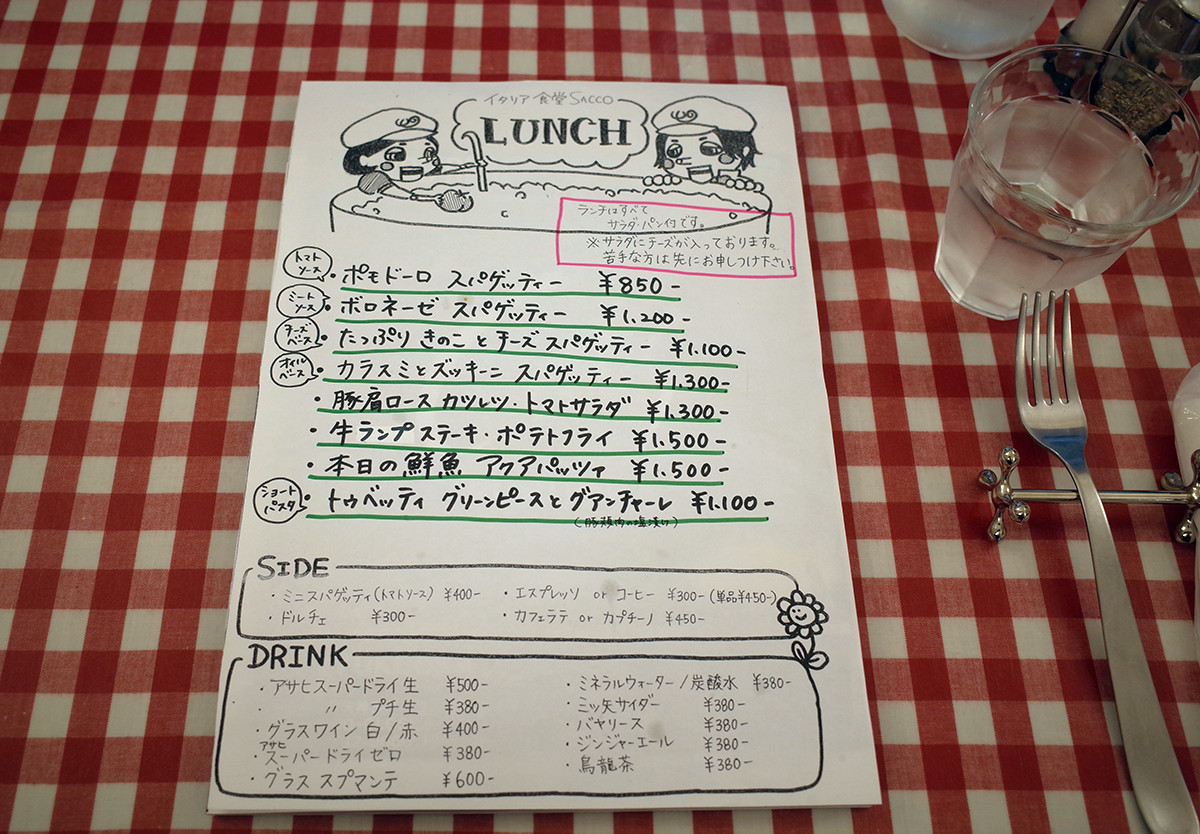 イタリア食堂SACCO
LUNCH
ランチはすべて
サラダ・パン付です。
※サラダにチーズが入っております。
苦手な方は先にお申しつけ下さい。
トマトソース ・ポモドーロ スパゲッティー ¥850-
ミートソース ・ボロネーゼ スパゲッティー ¥1.200-
チーズベース ・たっぷりきのことチーズスパゲッティー ¥1.100-
オイルベース ・カラスミとズッキーニ スパゲッティー ¥1.300-
・豚肩ロースカツレツ・トマトサラダ ¥1.300-
・牛ランプステーキ・ポテトフライ ¥1.500-
・本日の鮮魚 アクアパッツァ ¥1.500-
ショートパスタ ・トゥベッティ グリーンピースとグアンチャーレ ¥1.100-
(豚頬肉の塩漬け)
SIDE
・ミニスパゲッティ(トマトソース) ¥400-
・ドルチェ ¥300-
・エスプレッソ or コーヒー ¥300-(単品¥450-)
・カフェラテ or カプチーノ ¥450-
DRINK
・アサヒスーパードライ生 ¥500-
・ 〃 プチ生 ¥380-
・グラスワイン 白/赤 ¥400-
・アサヒスーパードライゼロ ¥380-
・グラス スプマンテ ¥600-
・ミネラルウォーター/炭酸水 ¥380-
・ミッ矢サイダー ¥380-
・バヤリース ¥380-
・ジンジャーエール ¥380-
・烏龍茶 ¥380-